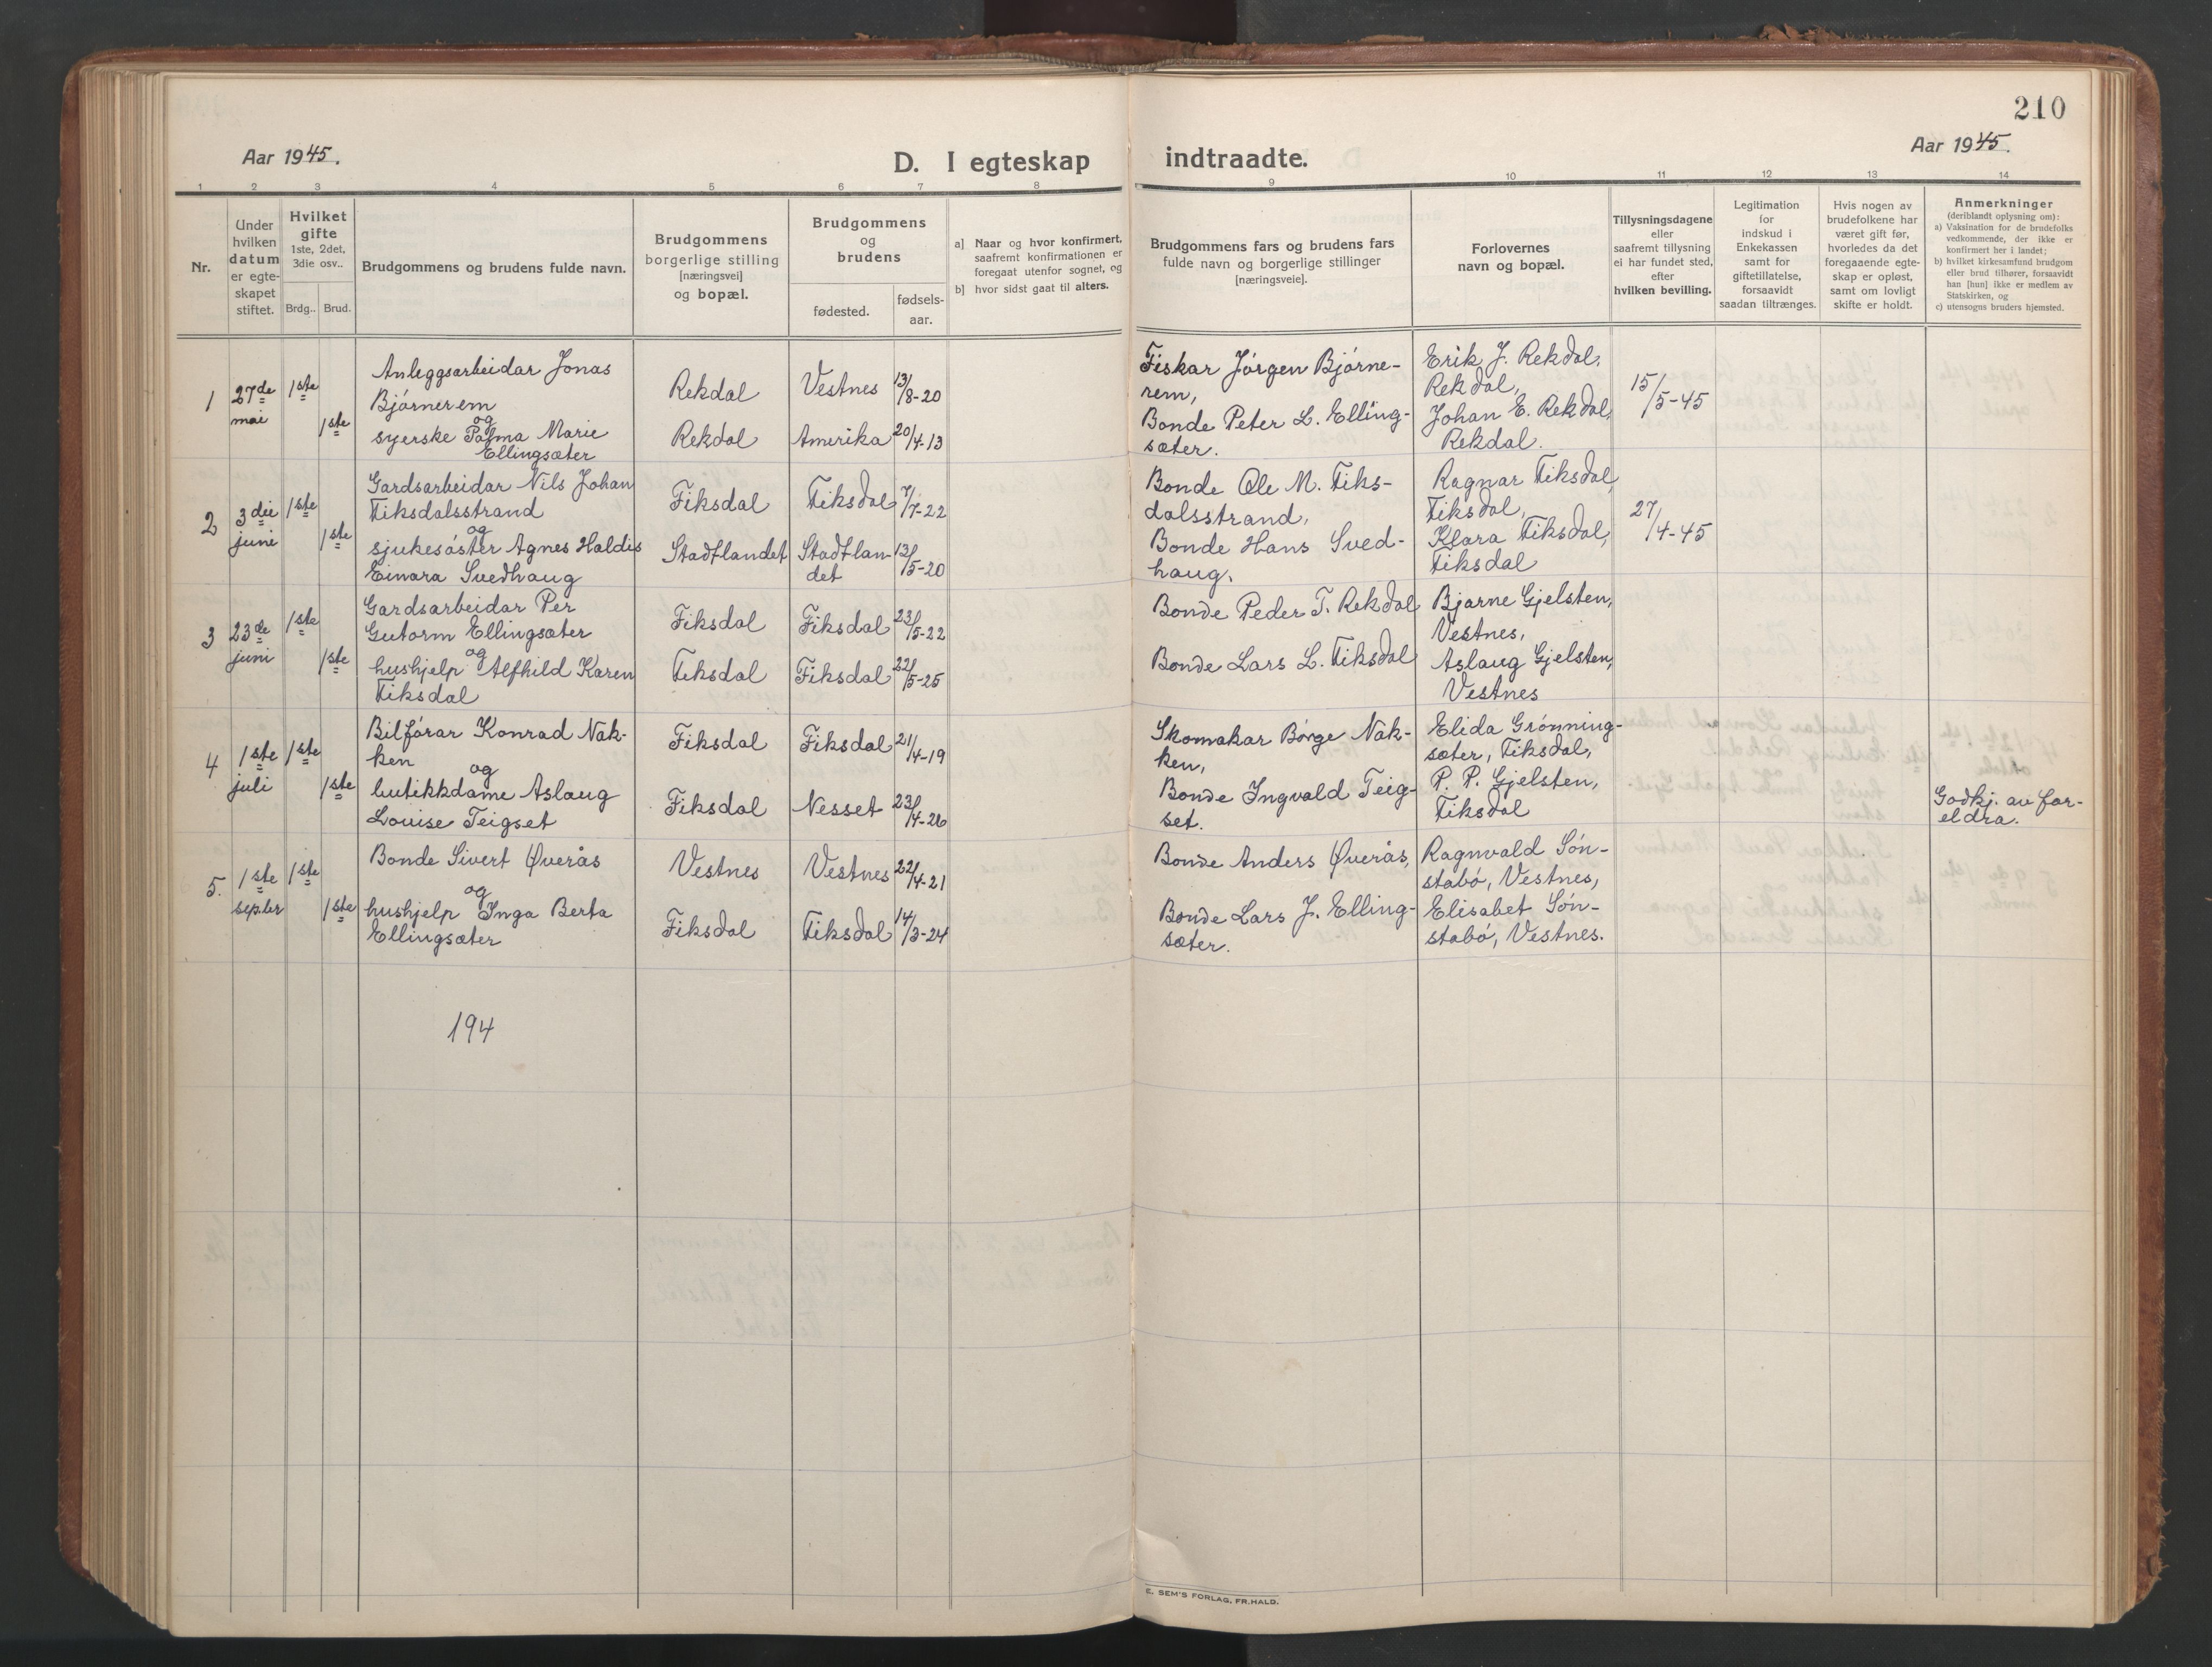 210
Aar 1945.
D. I egteskap indtraadte.
Aar 1945.
1 2 3 4 5 6 7 8 9 10 11 12 13 14
Nr.
Under
hvilken
datum
er egte-
skapet
stiftet.
Hvilket
gifte
1ste, 2det,
3die osv..
Brdg.. Brud.
Brudgommens og brudens fulde navn.
Brudgommens
borgerlige stilling
[næringsvei]
og bopæl.
Brudgommens
og
brudens
fødested.
fødsels-
aar.
a] Naar og hvor konfirmert,
saafremt konfirmationen er
foregaat utenfor sognet, og
b] hvor sidst gaat til alters.
Brudgommens fars og brudens fars
fulde navn og borgerlige stillinger
[næringsveie].
Forlovernes
navn og bopæl.
Tillysningsdagene
eller
saafremt tillysning
ei har fundet sted,
efter
hvilken bevilling.
Legitimation
for
indskud i
Enkekassen
samt for
giftetillatelse,
forsaavidt
saadan tiltrænges.
Hvis nogen av
brudefolkene har
været gift før,
hvorledes da det
foregaaende egte-
skap er opløst,
samt om lovligt
skifte er holdt.
Anmerkninger
(deriblandt oplysning om):
a) Vaksination for de brudefolks
vedkommende, der ikke er
konfirmert her i landet;
b) hvilket kirkesamfund brudgom
eller brud tilhører, forsaavidt
han [hun] ikke er medlem av
Statskirken, og
c) utensogns bruders hjemsted.
1
27de
mai
1ste
1ste
Anleggsarbeidar Jonas
Bjørnerem
og
syerske Palma Marie
Ellingsæter
Rekdal
Rekdal
Vestnes
Amerika
13/8-20
20/4-13
Fiskar Jørgen Bjørne-
rem,
Bonde Peter L. Elling-
sæter.
Erik J. Rekdal,
Rekdal,
Johan E. Rekdal,
Rekdal.
15/5-45
2
3die
juni
1ste
1ste
Gardsarbeidar Nils Johan
Fiksdalsstrand
og
sjukesøster Agnes Haldis
Einara Svedhaug
Fiksdal
Stadtlandet
Fiksdal
Stadtlan-
det
7/7-22
13/5-20
Bonde Ole M. Fiks-
dalsstrand,
Bonde Hans Sved-
haug.
Ragnar Fiksdal,
Fiksdal,
Klara Fiksdal,
Fiksdal
27/4-45
3
23de
juni
1ste
1ste
Gardsarbeidar Per
Gutorm Ellingsæter
og
hushjelp Alfhild Karen
Fiksdal
Fiksdal
Fiksdal
Fiksdal
Fiksdal
23/5-22
22/5-25
Bonde Peder T. Rekdal
Bonde Lars L. Fiksdal
Bjarne Gjelsten,
Vestnes,
Aslaug Gjelsten,
Vestnes
4
1ste
juli
1ste
1ste
Bilførar Konrad Nak-
ken
og
butikkdame Aslaug
Louise Teigset
Fiksdal
Fiksdal
Fiksdal
Nesset
21/4-19
23/4-26
Skomakar Børge Nak-
ken,
Bonde Ingvald Teig-
set.
Elida Grønning-
sæter, Fiksdal,
P. P. Gjelsten,
Fiksdal
Godkj. av for-
eldra.
5.
1ste
septbr
1ste
1ste
Bonde Sivert Øverås
og
hushjelp Inga Berta
Ellingsæter
Vestnes
Fiksdal
Vestnes
Fiksdal
22/4-21
14/3-24
Bonde Anders Øverås,
Bonde Lars J. Elling-
sæter.
Ragnvald Søn-
stabø, Vestnes,
Elisabet Søn-
stabø, Vestnes.
194
E. SEM'S FORLAG, FR.HALD.